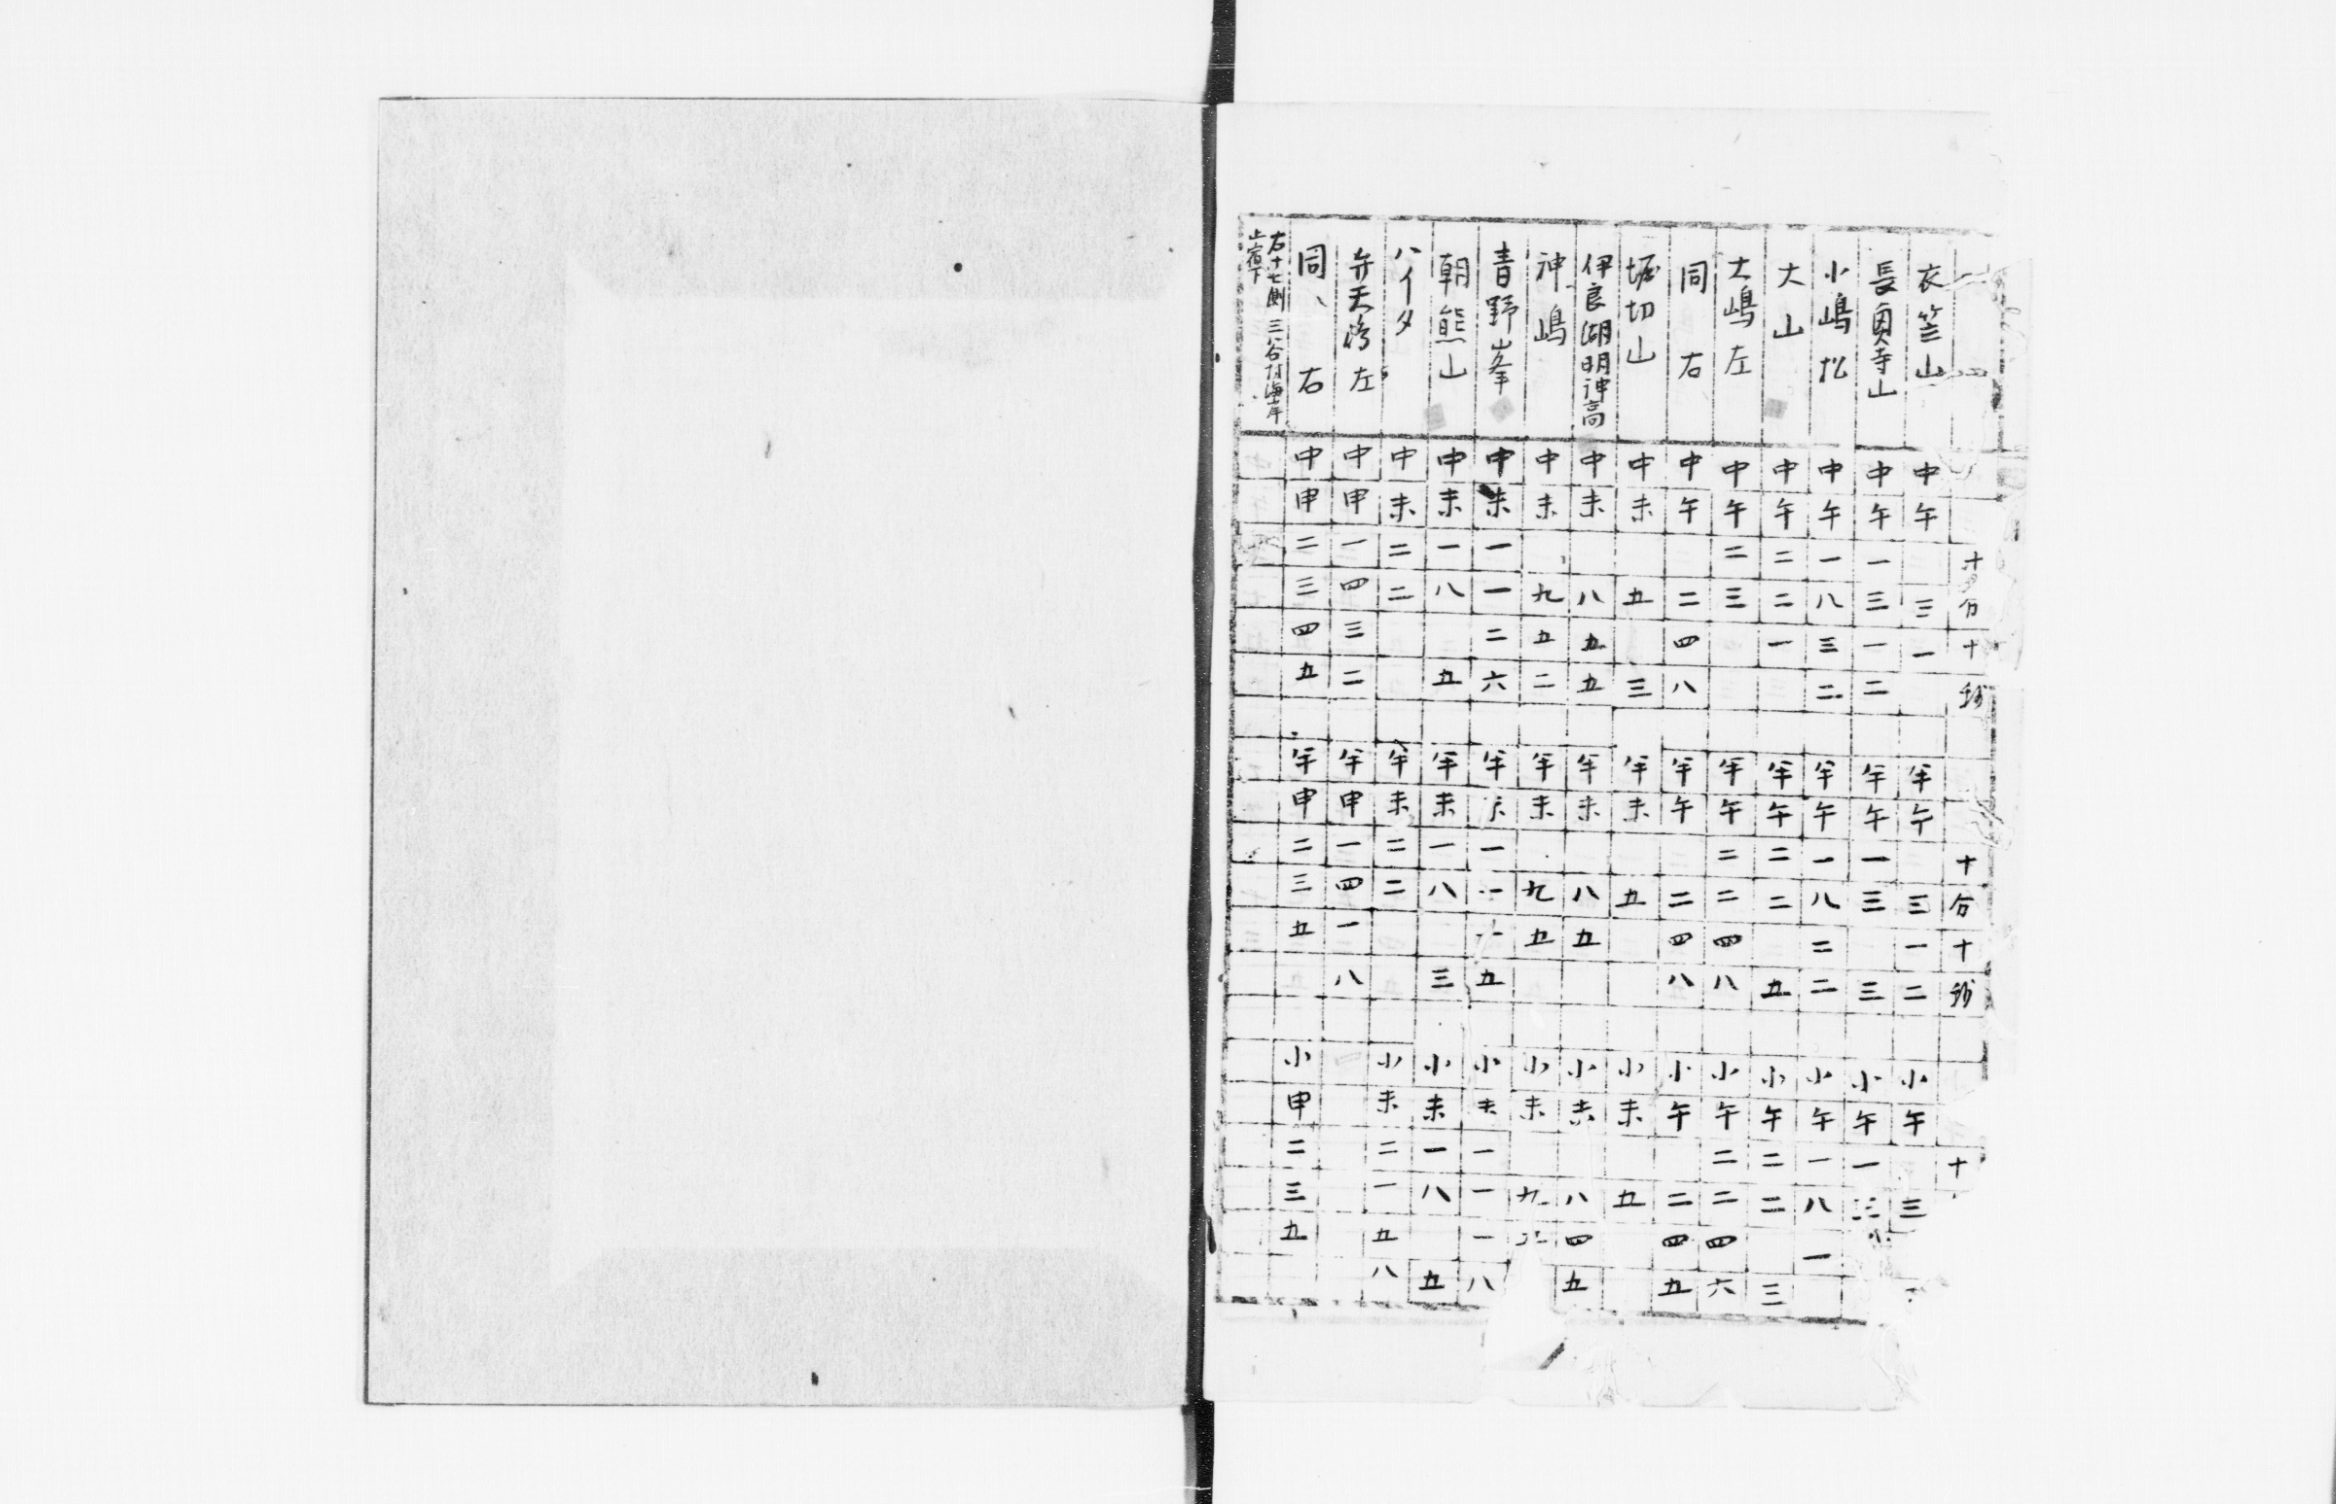 十分十秒 十分十秒 十
衣笠山 中午三一 半午三一二 小午三
長興寺山 中午一三一二 半午一三三 小午一三
小嶋松 中午一八三二 半午一八二二 小午一八一
大山 中午二二一 半午二二五 小午二二三
大嶋左 中午二三 半午二二四八 小午二二四六
同右 中午二四八 半午二四八 小午二四五
堀切山 中未五三 半未五 小未五
伊良湖明神高 中未八五五 半未八五 小未八四五
神嶋 中未九五二 半未九五 小未九
青野峯 中未一一二六 半未一一五 小未一一一八
朝熊山 中未一八五 半未一八三 小未一八五
ハイタ 中未二二 半未二二 小未二一五八
弁天嶋左 中申一四三二 半申一四一八
同、右 中申二三四五 半申二三五 小申二三五
右十七測三谷村海岸
止宿下